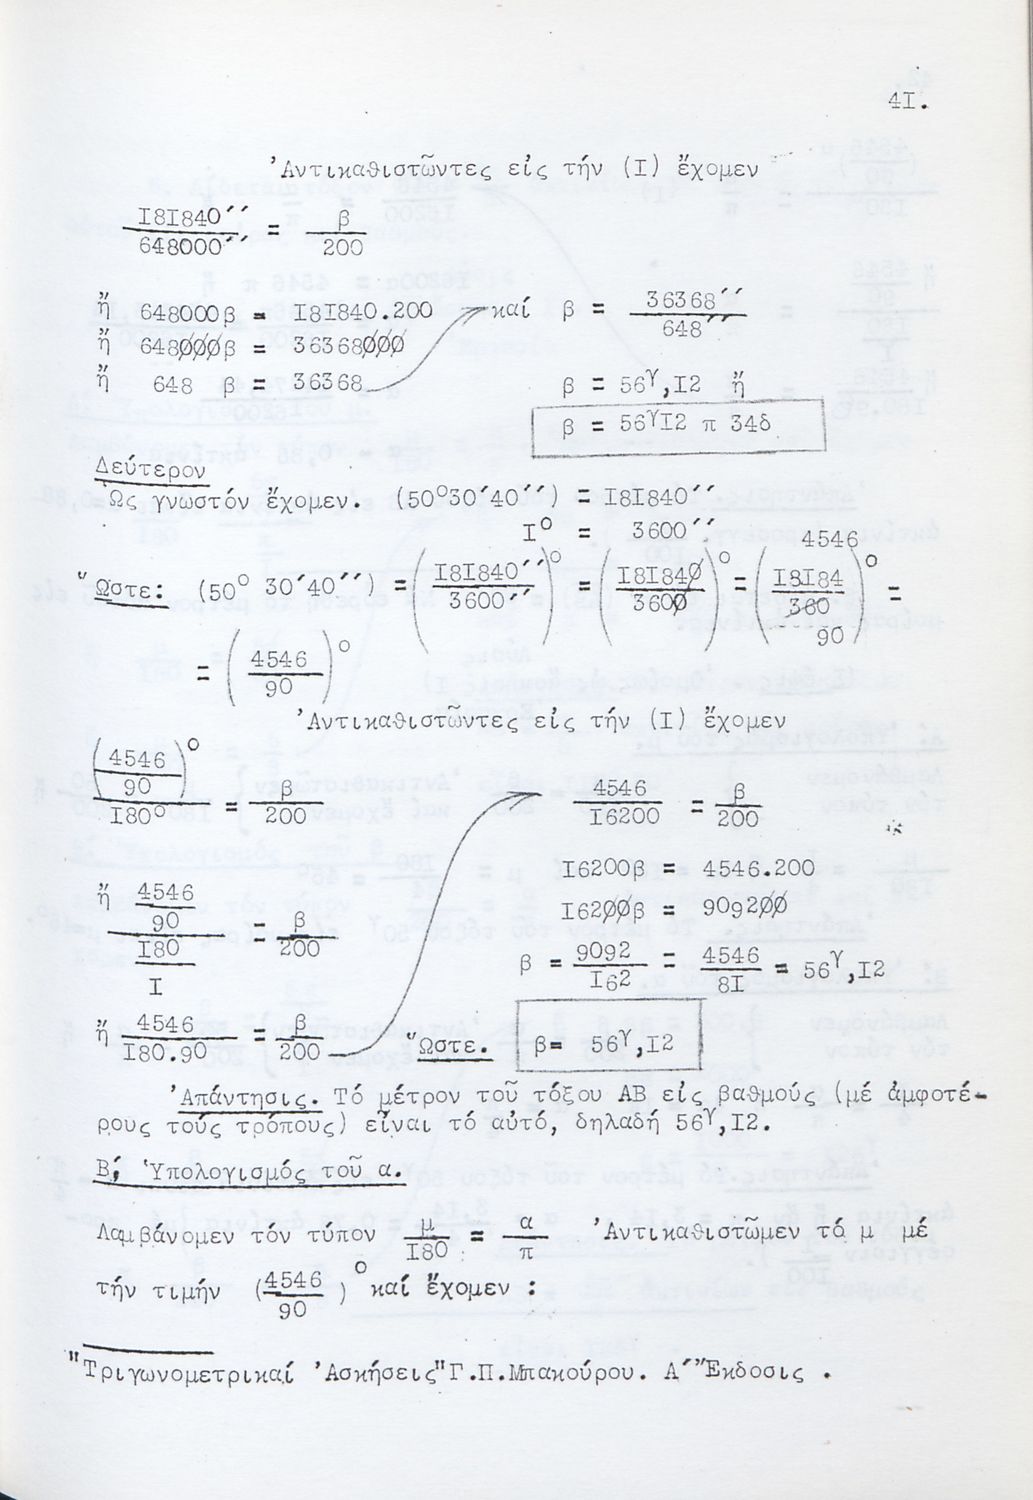 4I.
Ἀντικαθιστῶντες εἰς τήν (I) ἔχομεν
I8I840´´/648000´´ = β/200
ἤ 648000β = I8I840.200
ἤ 648000β = 36368000
ἤ 648 β = 36368
καί β = 36368´´/648´´
β = 56γ,I2 ἤ
β = 56γI2 π 34δ
Δεύτερον
Ὡς γνωστόν ἔχομεν. (50°30´40´´) = I8I840´´
I° = 3600´´
Ὥστε: (50° 30´40´´) = (I8I840´´/3600´´)° = (I8I840/3600)° = (4546 I8I84/360 90)° =
= (4546/90)°
Ἀντικαθιστῶντες εἰς τήν (I) ἔχομεν
(4546/90)°/I80° = β/200
ἤ 4546/90/I80/I = β/200
ἤ 4546/I80.90 = β/200
4546/I6200 = β/200
I6200β = 4546.200
I6200β = 909200
β = 9092/I62 = 4546/8I = 56γ,I2
Ὥστε. β= 56γ,I2
Ἀπάντησις. Τό μέτρον τοῦ τόξου ΑΒ εἰς βαθμούς (μέ ἀμφοτέ-
ρους τούς τρόπους) εἶναι τό αὐτό, δηλαδή 56γ,I2.
Β΄, Ὑπολογισμός τοῦ α.
Λαμβάνομεν τόν τύπον μ/I80 = α/π Ἀντικαθιστῶμεν τό μ μέ
τήν τιμήν (4546/90)° καί ἔχομεν :
"Τριγωνομετρικαί Ἀσκήσεις" Γ.Π.Μπακούρου. Α΄ Ἔκδοσις .